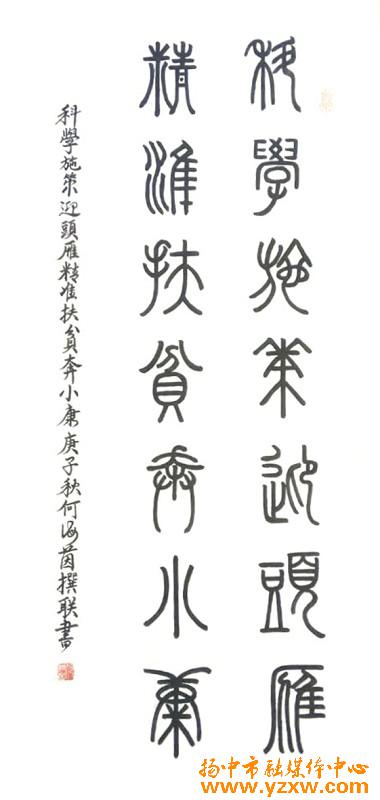 科學施策迎頭雁
精準扶貧奔小康
科學施策迎頭雁精准扶貧奔小康庚子秋何海茵撰联書
扬中市融媒体中心
www.yzxw.com